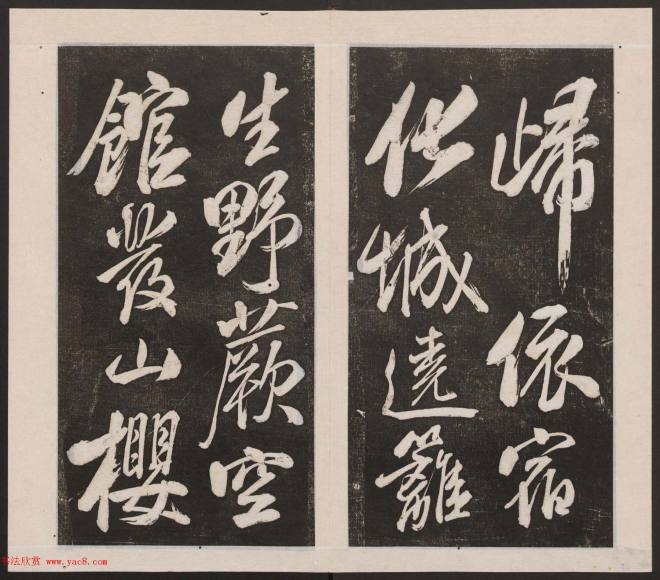 歸依宿
化城遶籬
生野蕨空
館發山櫻
书法欣赏 www.yac8.com